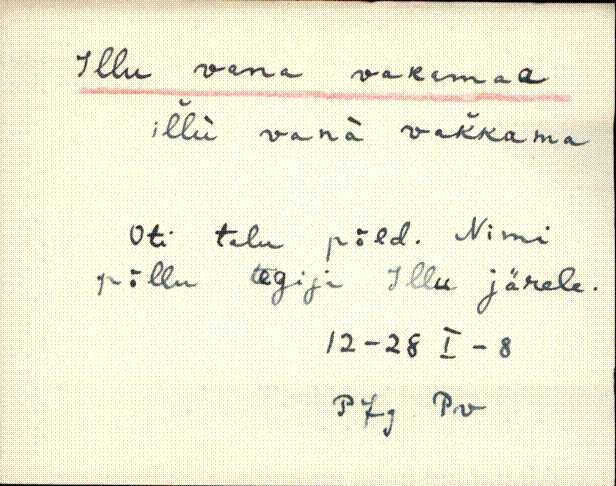 Illu vana vakamaa
il̆lù vanà vak̆kama
Oti talu põld. Nimi
põllu tegija Illu järele.
12-28 I - 8
Pv